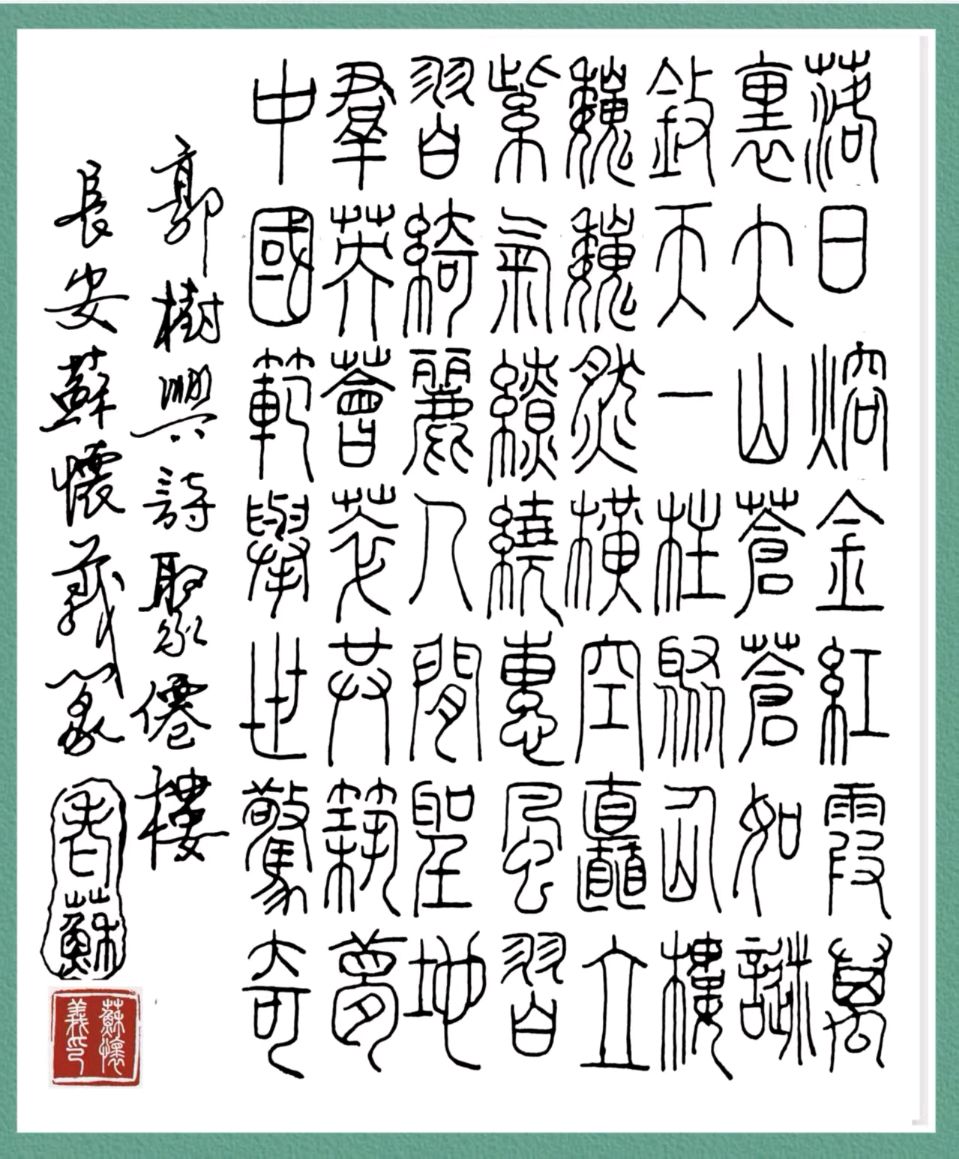 落日熔金紅霞萬
裏大山蒼蒼如謎
敍天一柱聚仚樓
巍巍然橫空矗立
紫氣繚繞惠風習
習綺麗人間聖地
羣英薈萃共築夢
中國範舉世驚奇
郭樹興詩聚僊樓
長安蘇懷義篆
老蘇
蘇懷義印